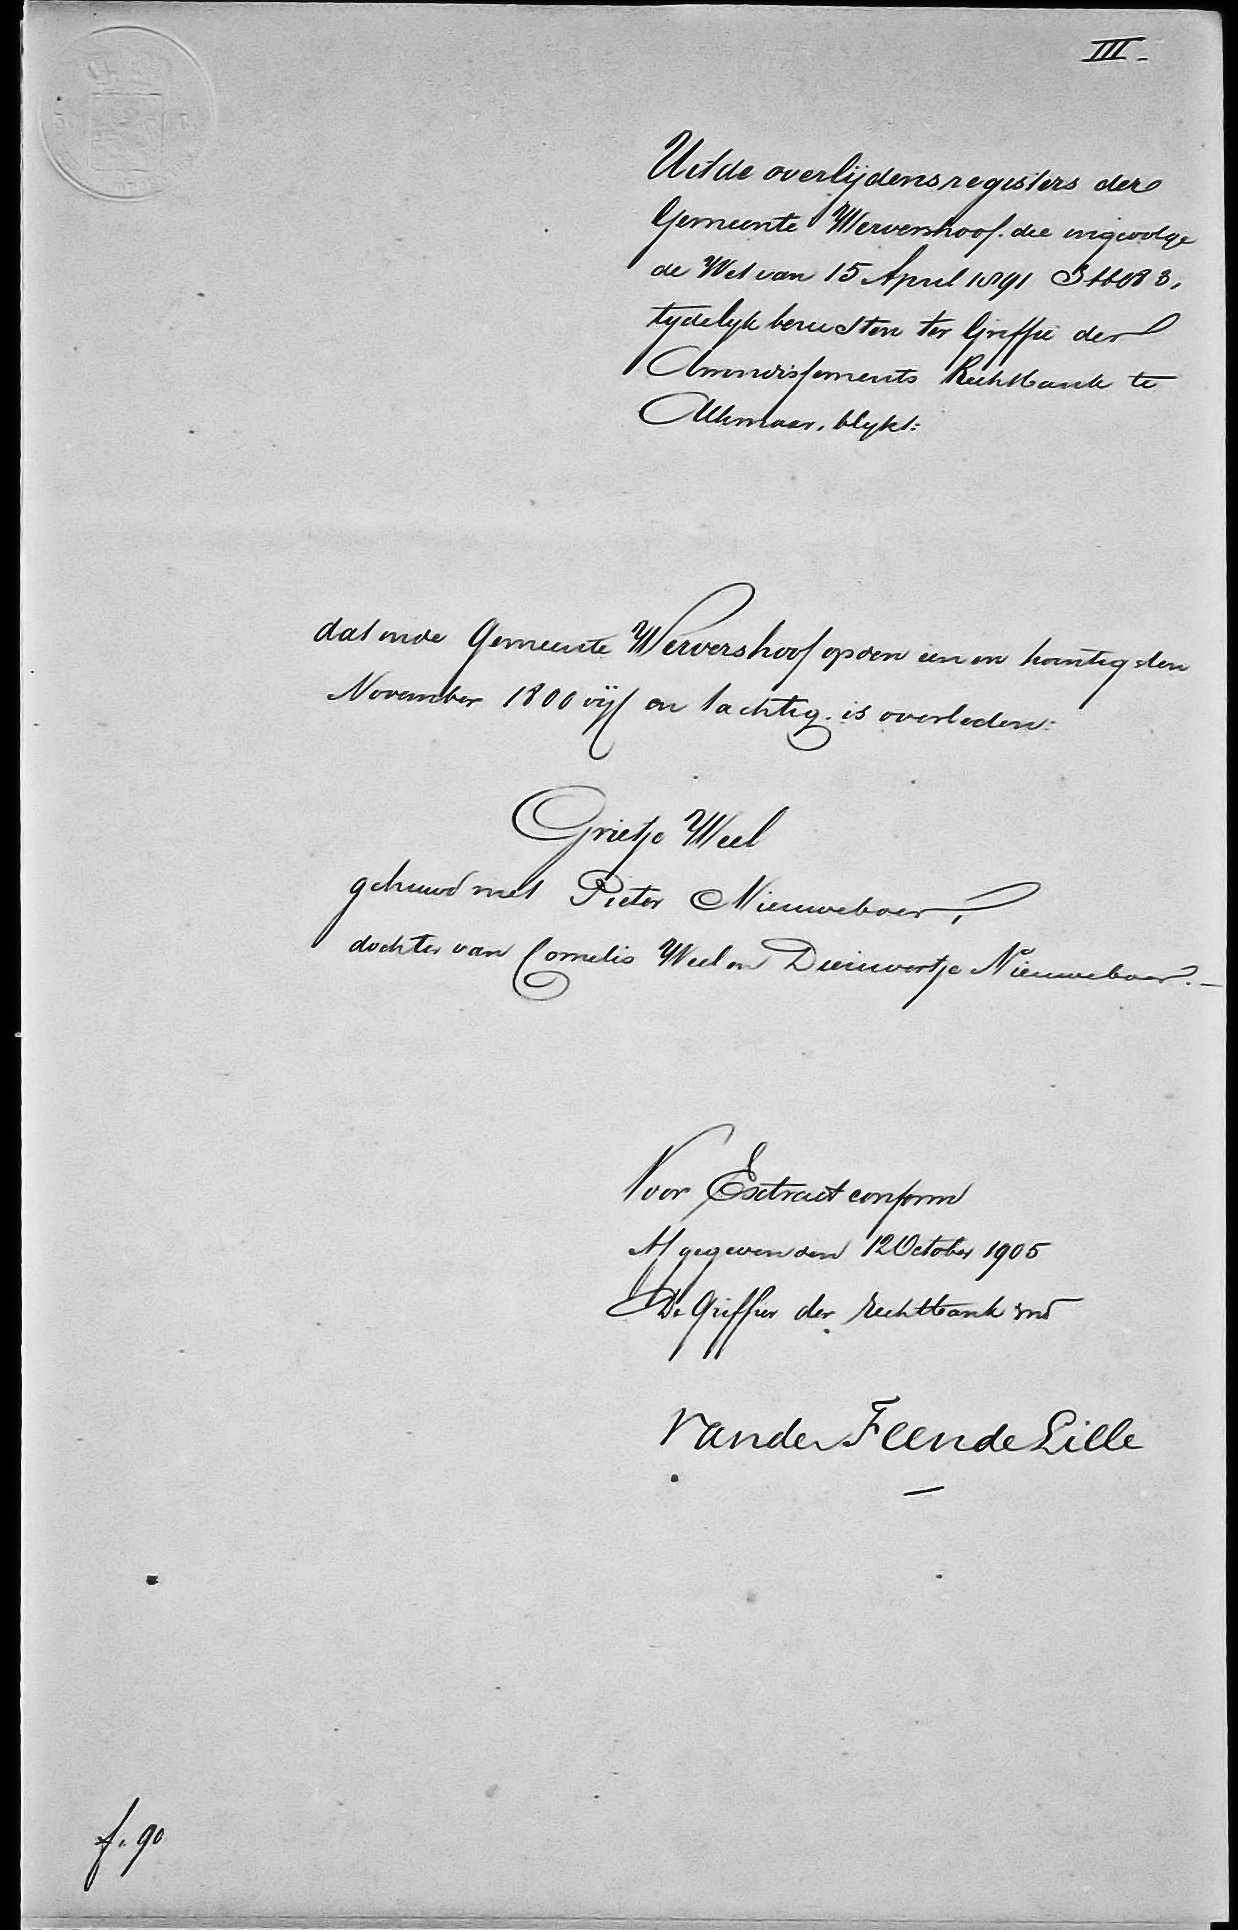 III.
Uit de overlijdensregisters der
Gemeente Wervershoof. die ingevolge
de Wet van 15 April 1891 Stbl 83,
tydelyk berusten ter Griffie der
Arrondissements Rechtbank te
Alkmaar, blykt:
dat in de Gemeente Wervershoof op den een en twintigsten
November 1800 vijf en tachtig. is overleden:
Grietje Weel
gehuwd met Pieter Nieuweboer,
dochter van Cornelis Weel en Dieuwertje Nieuweboer.
Voor Extract conform
Afgegeven den 12 October 1905
De Griffier der Rechtbank vnd
Van der Feen de Lille
f. 90